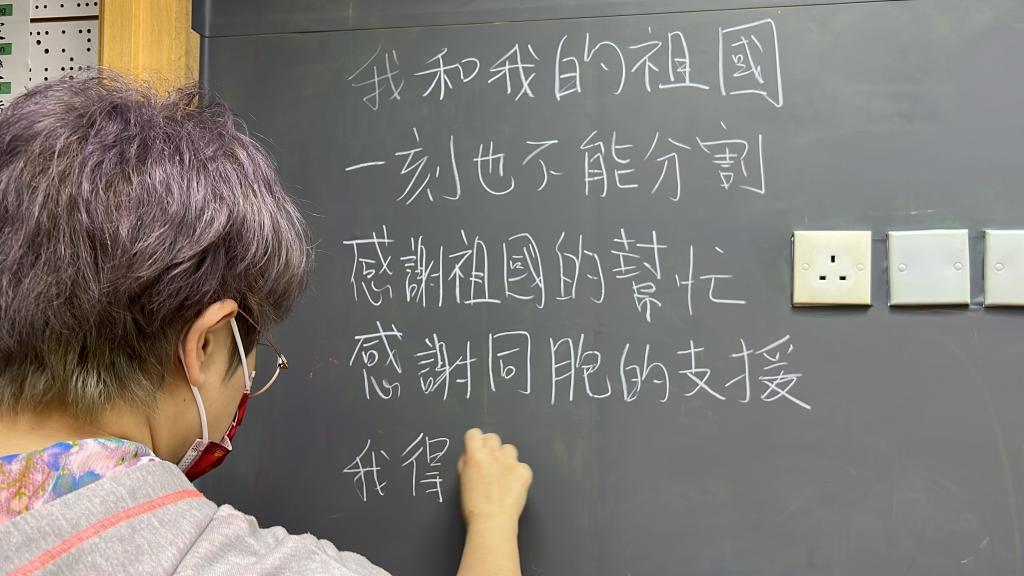 我和我的祖國
一刻也不能分割
感謝祖國的幫忙
感謝同胞的支援
我得